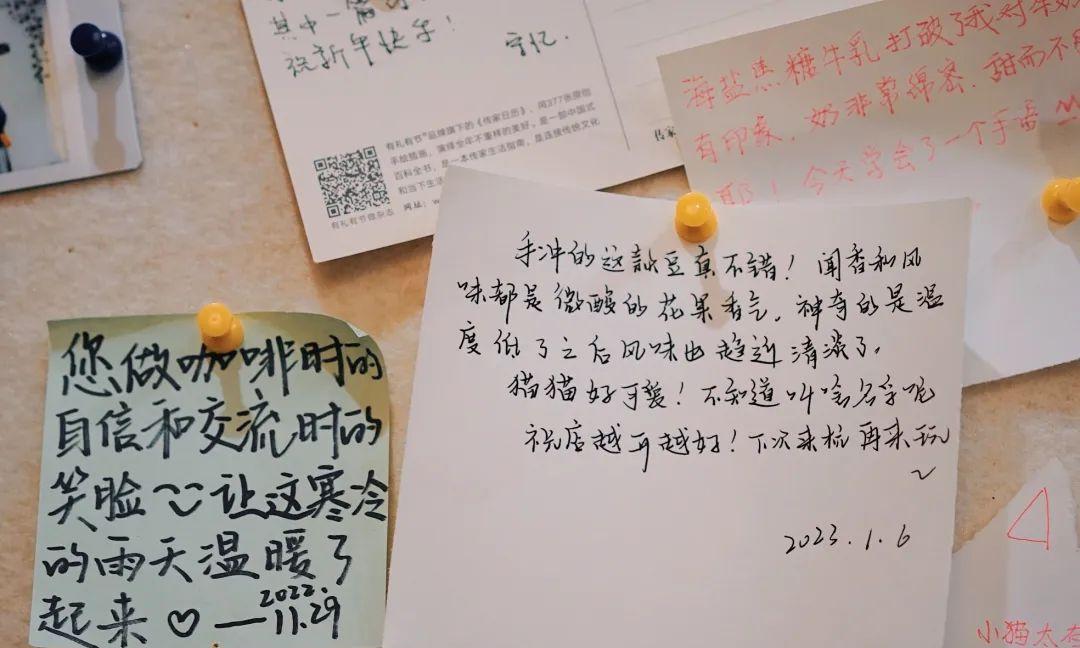 其中一篇
祝新年快乐！
宁亿.
有礼有节"品牌旗下的《传家日历》，用377张原创
手绘插画，演绎全年不重样的美好，是一部中国式
百科全书，是一本传家生活指南，是连接传统文化
和当下生活
网址：w
有礼有节微杂志
传家
海盐焦糖牛乳打破了我对牛奶
有印象，奶非常绵密，甜而不
耶！今天学会了一个手
手冲的这款豆真不错！闻香和风
味都是微酸的花果香气，神奇的是温
度低了之后风味也趋近清淡了。
猫猫好可爱！不知道叫啥名字呢
祝店越开越好！下次来杭再来玩
~
2023.1.6
您做咖啡时的
自信和交流时的
笑脸 让这寒冷
的雨天温暖了
起来♡—2022.
11.29
小猫太